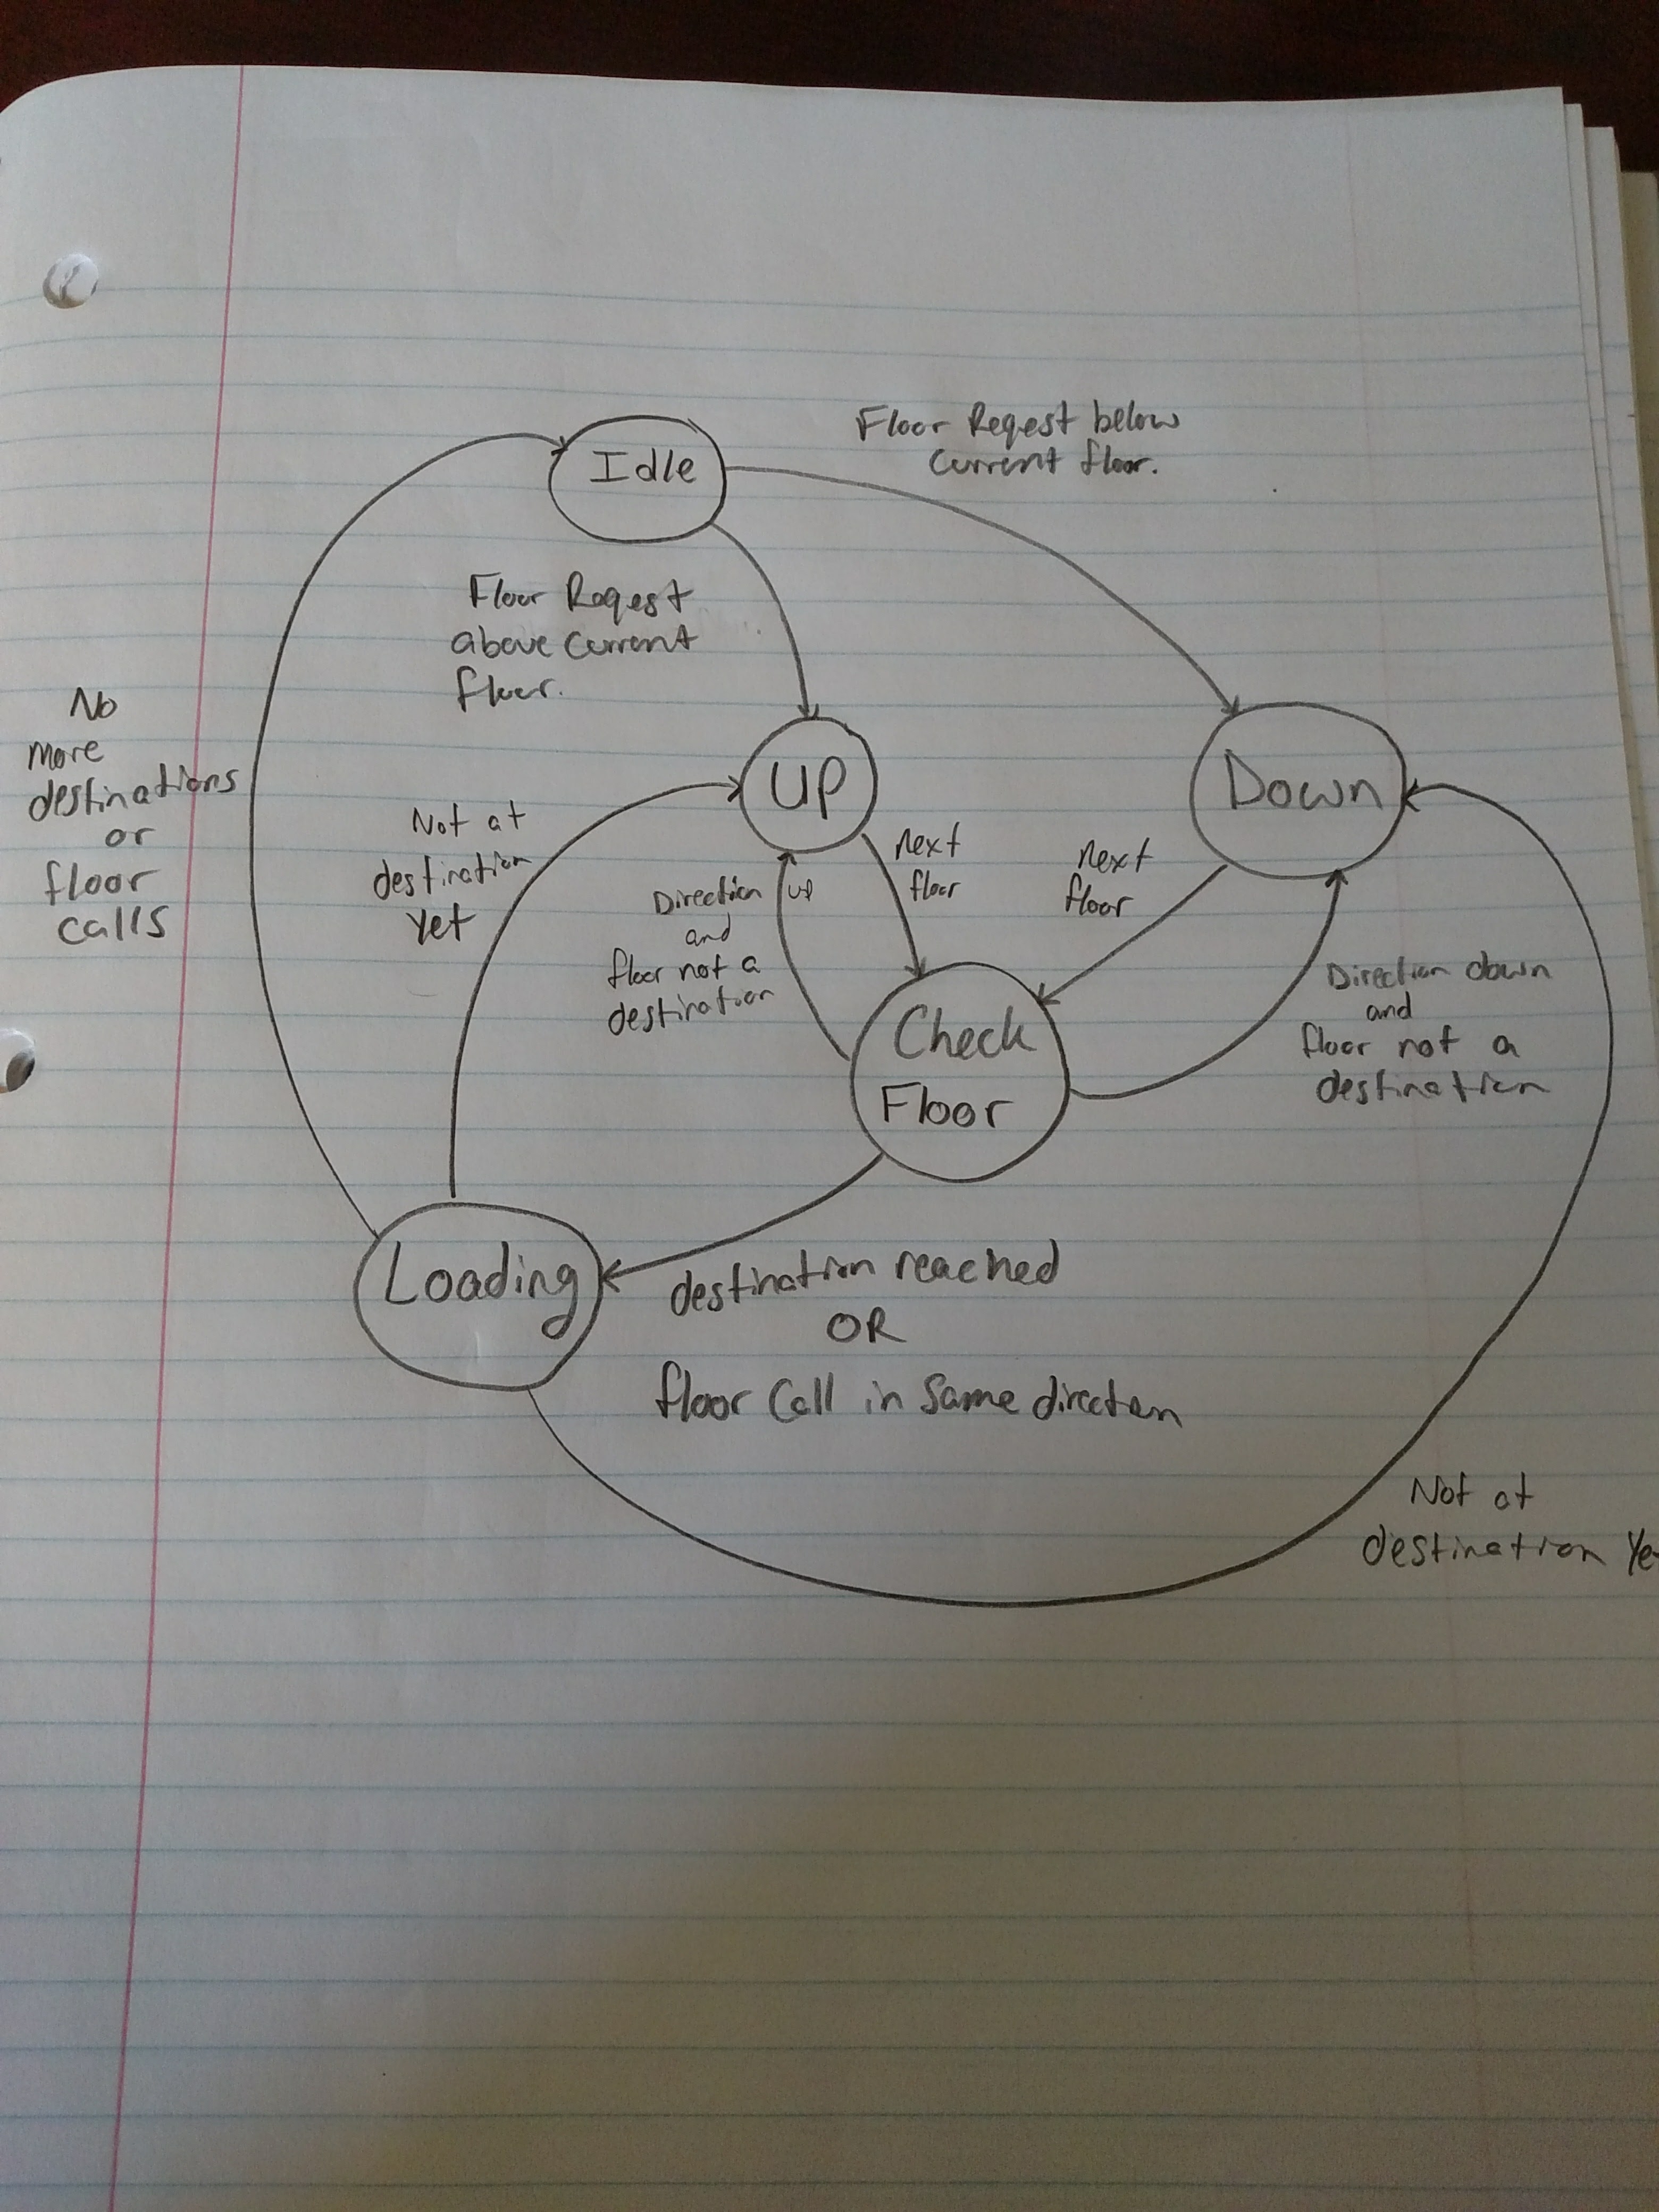 Idle
Floor Reqest below
Current floor.
Floor Reqest
above Current
floor.
No
more
destinations
or
floor
calls
UP
Down
Not at
destination
Yet
next
floor
next
floor
Direction up
and
floor not a
destination
Check
Floor
Direction down
and
floor not a
destination
Loading
destination reached
OR
floor Call in Same direction
Not at
destination Ye